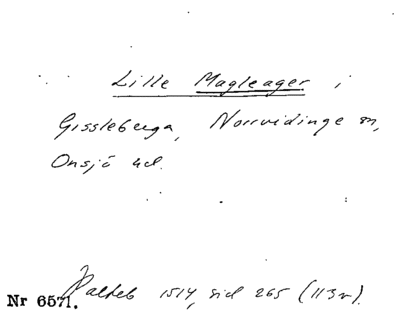 Lille Magleager i
Gissleberga, Norrvidinge sn,
Onsjö hd.
Palteb 1514, sid 265 (113v).
Nr 6571.